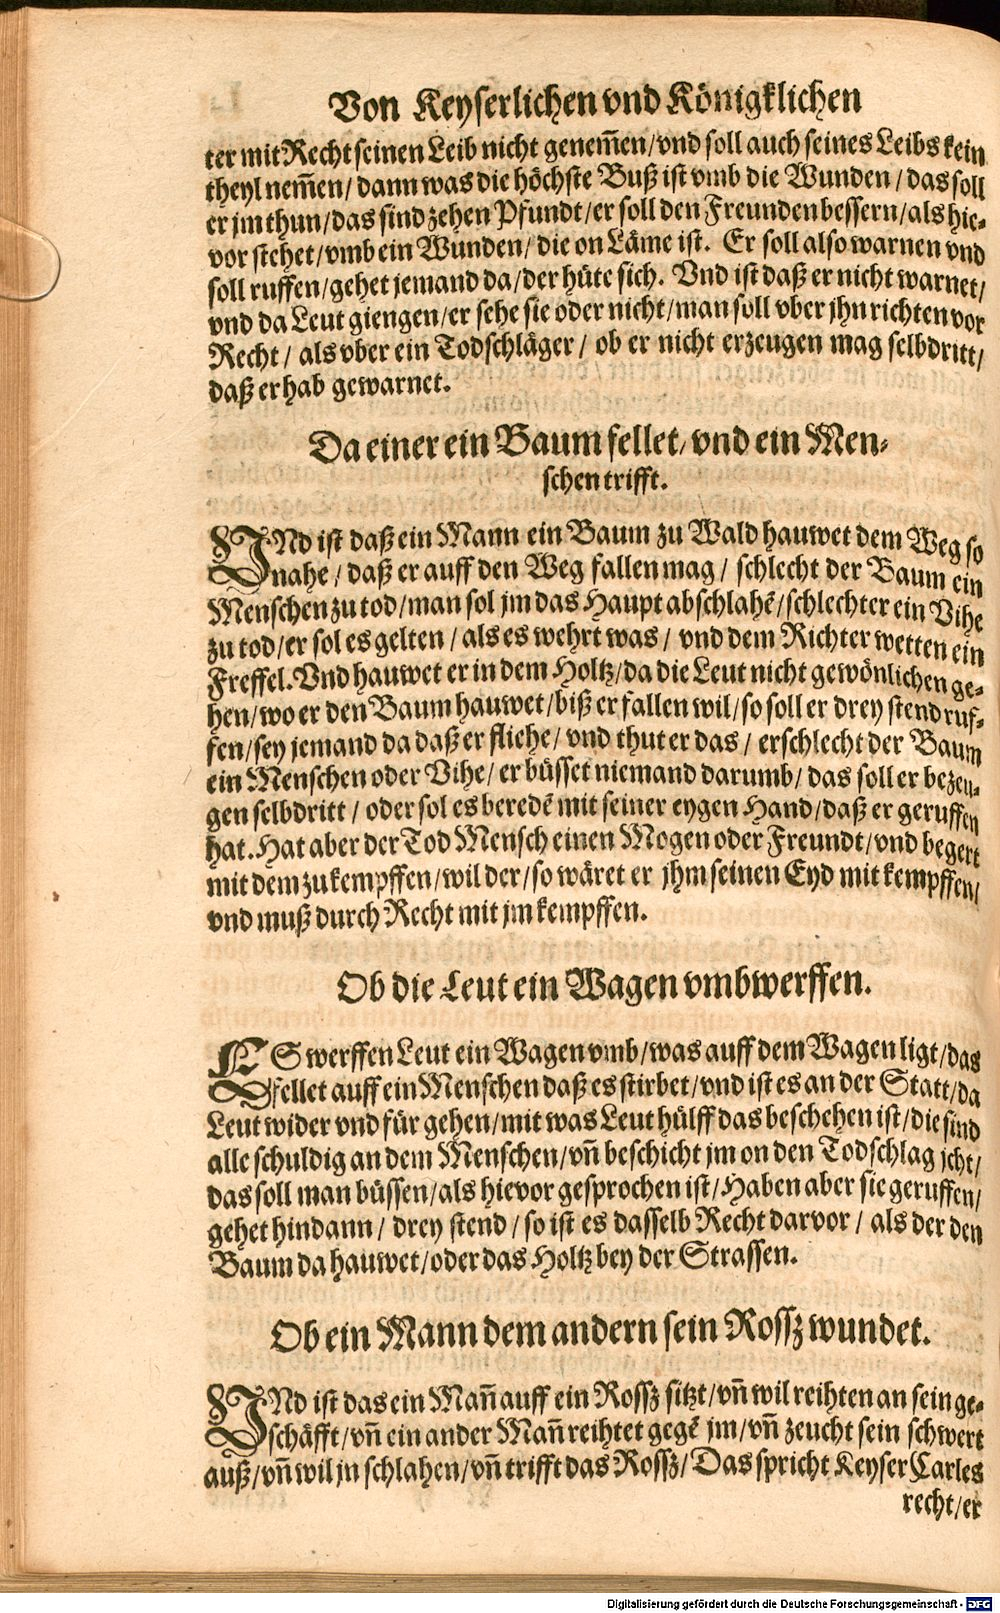 Von Keyserlichen vnd Königklichen
ter mit Recht seinen Leib nicht genem̃en/vnd soll auch seines Leibs kein
theyl nem̃en/ dann was die höchste Buß ist vmb die Wunden/ das soll
er jm thun/das sind zehen Pfundt/er soll den Freunden bessern/als hie-
vor stehet/vmb ein Wunden/ die on Läme ist. Er soll also warnen vnd
soll ruffen/gehet jemand da/der hüte sich. Vnd ist daß er nicht warnet/
vnd da Leut giengen/er sehe sie oder nicht/man soll vber jhn richten vor
Recht/ als vber ein Todschläger/ ob er nicht erzeugen mag selbdritt/
daß er hab gewarnet.
Da einer ein Baum fellet/ vnd ein Men-
schen trifft.
VNd ist daß ein Mann ein Baum zu Wald hauwet dem Weg so
nahe/ daß er auff den Weg fallen mag/ schlecht der Baum ein
Menschen zu tod/man sol jm das Haupt abschlahẽ/schlecht er ein Vihe
zu tod/er sol es gelten/ als es wehrt was/ vnd dem Richter wetten ein
Freffel. Vnd hauwet er in dem Holtz/da die Leut nicht gewönlichen ge-
hen/wo er den Baum hauwet/biß er fallen wil/so soll er drey stend ruf-
fen/sey jemand da daß er fliehe/ vnd thut er das/ erschlecht der Baum
ein Menschen oder Vihe/ er büsset niemand darumb/ das soll er bezeu-
gen selbdritt/ oder sol es beredẽ mit seiner eygen Hand/daß er geruffen
hat. Hat aber der Tod Mensch einen Mogen oder Freundt/vnd begert
mit dem zu kempffen/wil der/so wäret er jhm seinen Eyd mit kempffen/
vnd muß durch Recht mit jm kempffen.
Ob die Leut ein Wagen vmbwerffen.
ES werffen Leut ein Wagen vmb/was auff dem Wagen ligt/das
fellet auff ein Menschen daß es stirbet/vnd ist es an der Statt/da
Leut wider vnd für gehen/mit was Leut hülff das beschehen ist/die sind
alle schuldig an dem Menschen/vñ beschicht jm on den Todschlag jcht/
das soll man büssen/als hievor gesprochen ist/Haben aber sie geruffen/
gehet hindann/ drey stend/so ist es dasselb Recht darvor/ als der den
Baum da hauwet/oder das Holtz bey der Strassen.
Ob ein Mann dem andern sein Rossz wundet.
VNd ist das ein Mañ auff ein Rossz sitzt/vñ wil reihten an sein ge-
schäfft/vñ ein ander Mañ reihtet gegẽ jm/vñ zeucht sein schwert
auß/vñ wil jn schlahen/vñ trifft das Rossz/ Das spricht Keyser Carles
recht/er
Digitalisierung gefördert durch die Deutsche Forschungsgemeinschaft - DFG